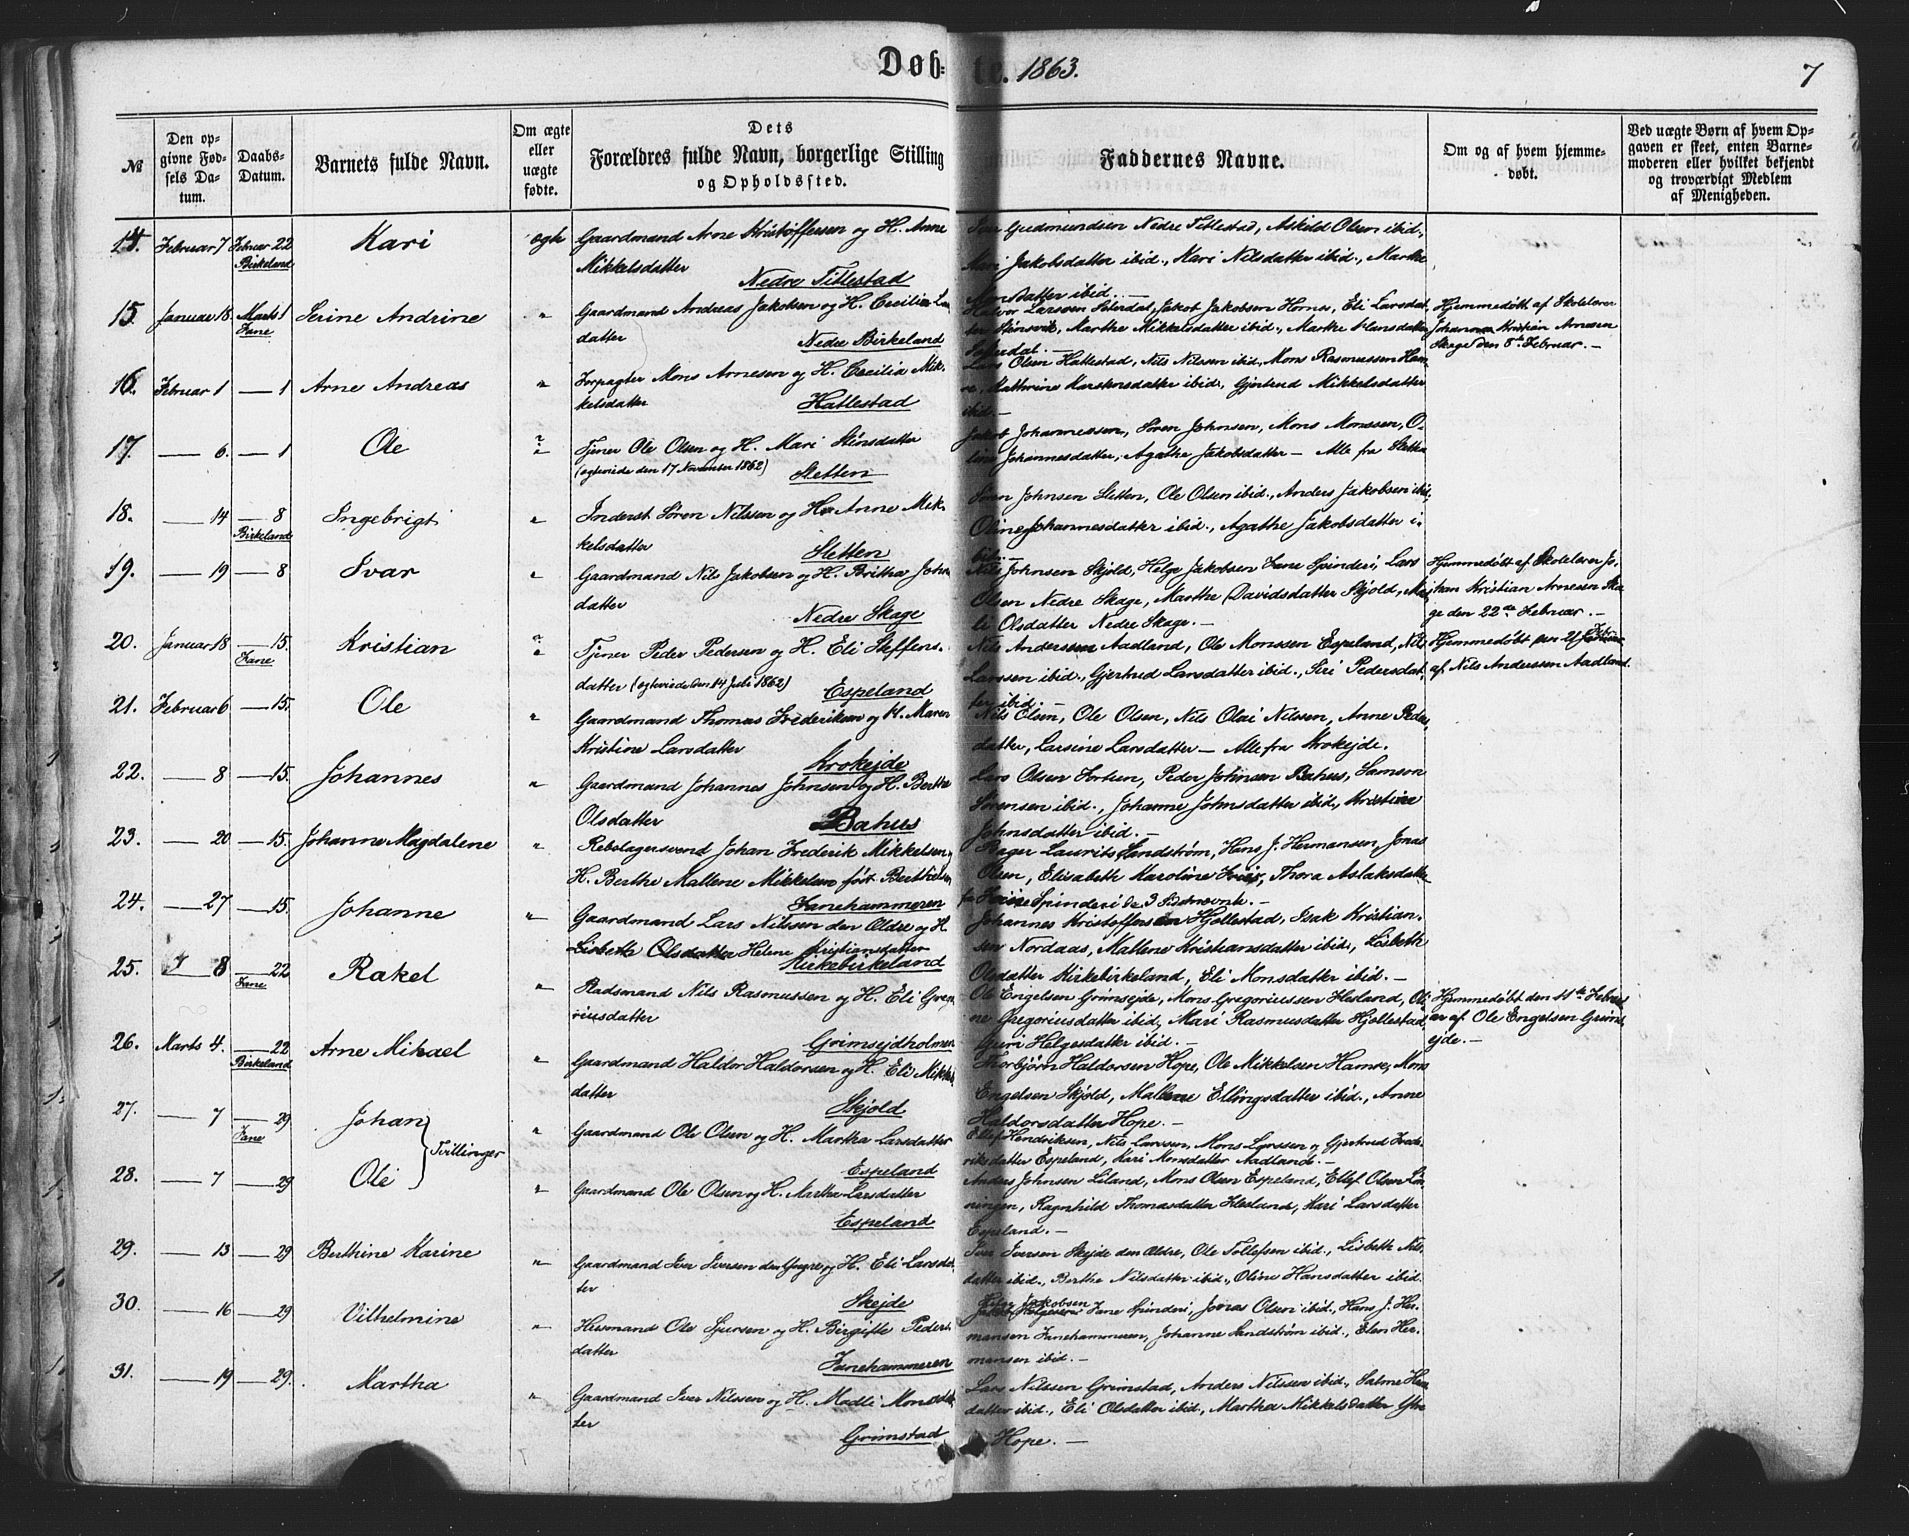 Døb- te. 1863. 7
№
Den opgivne Fødsels Datum.
Daabs-Datum.
Barnets fulde Navn.
Om ægte eller uægte fødte.
Dets
Forældres fulde Navn, borgerlige Stilling
og Opholdssted.
Faddernes Navne.
Om og af hvem hjemmedøbt.
Ved uægte Børn af hvem Opgaven er skeet, enten Barnemoderen eller hvilket bekjendt og troværdigt Medlem af Menigheden.
14. Februar 7 Februar 22 Birkeland Kari ægte Gaardmand Arne Kristoffersen og H. Anne
Mikkelsdatter Nedre Tillestad
Iver Gudmundsen Nedre Tillestad, Askild Olsen ibid.,
Kari Jakobsdatter ibid., Kari Nilsdatter ibid., Marthe
Monsdatter ibid. —
15. Januar 18. Marts 1 Fane Serine Andrine " Gaardmand Andreas Jakobsen og H. Cecilia Lars
datter Nedre Birkeland
Halvor Larssen Seterdal, Jakob Jakobsen Hornes, Eli Larsdat
ter Stensvik, Marthe Mikkelsdatter ibid., Marthe Hansdatter
Seterdal. —
Hjemmedøbt af Skolelærer
Johannes Kristian Arnesen
Skage den 8de Februar. —
16. Februar 1 — 1 Arne Andreas " Forpagter Mons Arnesen og H. Cecilia Mik-
kelsdatter Hattestad
Lars Olsen Hattestad, Nils Nilssen ibid., Mons Rasmussen Ham-
re, Kathrine Karstensdatter ibid., Gjertrud Mikkelsdatter
ibid. —
17. — 6. — 1 Ole " Tjener Ole Olsen og H. Mari Stensdatter
(ægteviede den 17 November 1862) Sletten
Jakob Johannessen, Søren Johnsen, Mons Monssen, O-
line Johannesdatter, Agathe Jakobsdatter — Alle fra Sletten
18. — 14 — 8 Birkeland Ingebrigt " Inderst Søren Nilssen og H. Anne Mik-
kelsdatter Sletten
Søren Johnsen Sletten, Ole Olsen ibid., Anders Jakobsen ibid.,
Oline Johannesdatter ibid., Agathe Jakobsdatter i-
bid. —
19. — 19 — 8 Ivar " Gaardmand Nils Jakobsen og H. Britha Johns
datter Nedre Skage
Nils Johnsen Skjold, Helge Jakobsen Fane Spinderi, Lars
Olsen Nedre Skage, Marthe Davidsdatter Skjold, Ma-
li Olsdatter Nedre Skage. —
Hjemmedøbt af Skolelærer Jo-
han Kristian Arnesen Ska-
ge den 22de Februar. —
20. Januar 18 — 15. Fane Kristian " Tjener Peder Pedersen og H. Eli Steffens-
datter (ægteviede den 14 Juli 1862) Espeland
Nils Anderssen Aadland, Ole Monssen Espeland, Nils
Larssen ibid., Gjertrud Larsdatter ibid., Siri Pedersdat-
ter ibid. —
Hjemmedøbt den 21 Februar
af Nils Anderssen Aadland.
21. Februar 6 — 15. Ole " Gaardmand Thomas Frederiksen og H. Maren
Kristine Larsdatter Krokejde
Nils Olsen, Ole Olsen, Nils Olai Nilssen, Anne Peders
datter, Larsine Larsdatter — Alle fra Krokejde.
22. — 8 — 15. Johannes " Gaardmand Johannes Johnsen og H. Berthe
Olsdatter Bahus
Lars Olsen Fortun, Peder Johnsen Bahus, Samson
Sørensen ibid., Johanne Johnsdatter ibid., Kristine
Johnsdatter ibid. —
23. — 20 — 15. Johanne Magdalene " Rebslagersvend Johan Frederik Mikkelsen og
H. Berthe Mallene Mikkelsen født Berthelsen
Fanehammeren
Bager Laurits Sandstrøm, Hans J. Hermansen, Jonas
Olsen, Elisabeth Karoline Friis, Thora Aslaksdatter
fra Fane Spinderi de 3 Sidstnævnte. —
24. — 27 — 15. Johanne " Gaardmand Lars Nilssen den Ældre og H.
Lisbeth Olsdatter Helene Kristiansdatter
Kirkebirkeland
Johannes Kristoffersen Hjellestad, Isak Kristian-
sen Nordaas, Mallene Kristiansdatter ibid., Lisbeth
Olsdatter Kirkebirkeland, Eli Monsdatter ibid. —
25. — 8 — 22 Fane Rakel " Pladsmand Nils Rasmussen og H. Eli Grego-
riusdatter Grimsejdholmen
Ole Engelsen Grimsejde, Mons Gregoriussen Hesland, Oli-
ne Gregoriusdatter ibid., Mari Rasmusdatter Hjellestad,
Guri Helgesdatter ibid. —
Hjemmedøbt den 11te Febru-
ar af Ole Engelsen Grims
ejde. —
26. Marts 4. — 22 Birkeland Arne Mikael " Gaardmand Haldor Haldorsen og H. Eli Mikkels
datter Skjold
Thorbjørn Haldorsen Hope, Ole Mikkelsen Hamre, Mons
Engelsen Skjold, Mallene Ellingsdatter ibid., Anne
Haldorsdatter Hope. —
27. — 7 — 29 Fane Johan } Tvillinger " Gaardmand Ole Olsen og H. Martha Larsdatter
Espeland
Ellef Hendriksen, Nils Larssen, Mons Larssen og Gjertrud Frede-
riksdatter Espeland, Kari Monsdatter Aadland. —
28. — 7 — 29 Ole " Gaardmand Ole Olsen og H. Martha Larsdatter
Espeland
Anders Johnsen Liland, Mons Olsen Espeland, Ellef Olsen Lø-
ningen, Ragnhild Thomasdatter Hesland, Kari Larsdatter
Espeland. —
29. — 13 — 29 Berthine Karine " Gaardmand Iver Iversen den Yngre og H. Eli Larsdat-
ter Skejde
Iver Iversen Skejde den Ældre, Ole Tollefsen ibid., Lisbeth Nils-
datter ibid., Berthe Nilsdatter ibid., Oline Hansdatter ibid.
30. — 16 — 29 Vilhelmine " Husmand Ole Sjursen og H. Birgitte Peders-
datter Fanehammeren
Helge Jakobsen
Jakob Helgesen Fane Spinderi, Jonas Olsen ibid., Hans J. Her-
mansen Fanehammeren, Johanne Sandstrøm ibid., Elen Her-
mansen ibid. —
31. — 19 — 29. Martha " Gaardmand Iver Nilssen og H. Madli Monsdat-
ter Grimstad
Lars Nilssen Grimstad, Anders Nilssen ibid., Salme Hans
datter ibid., Eli Olsdatter ibid., Martha Mikkelsdatter Ytre
Hope. —